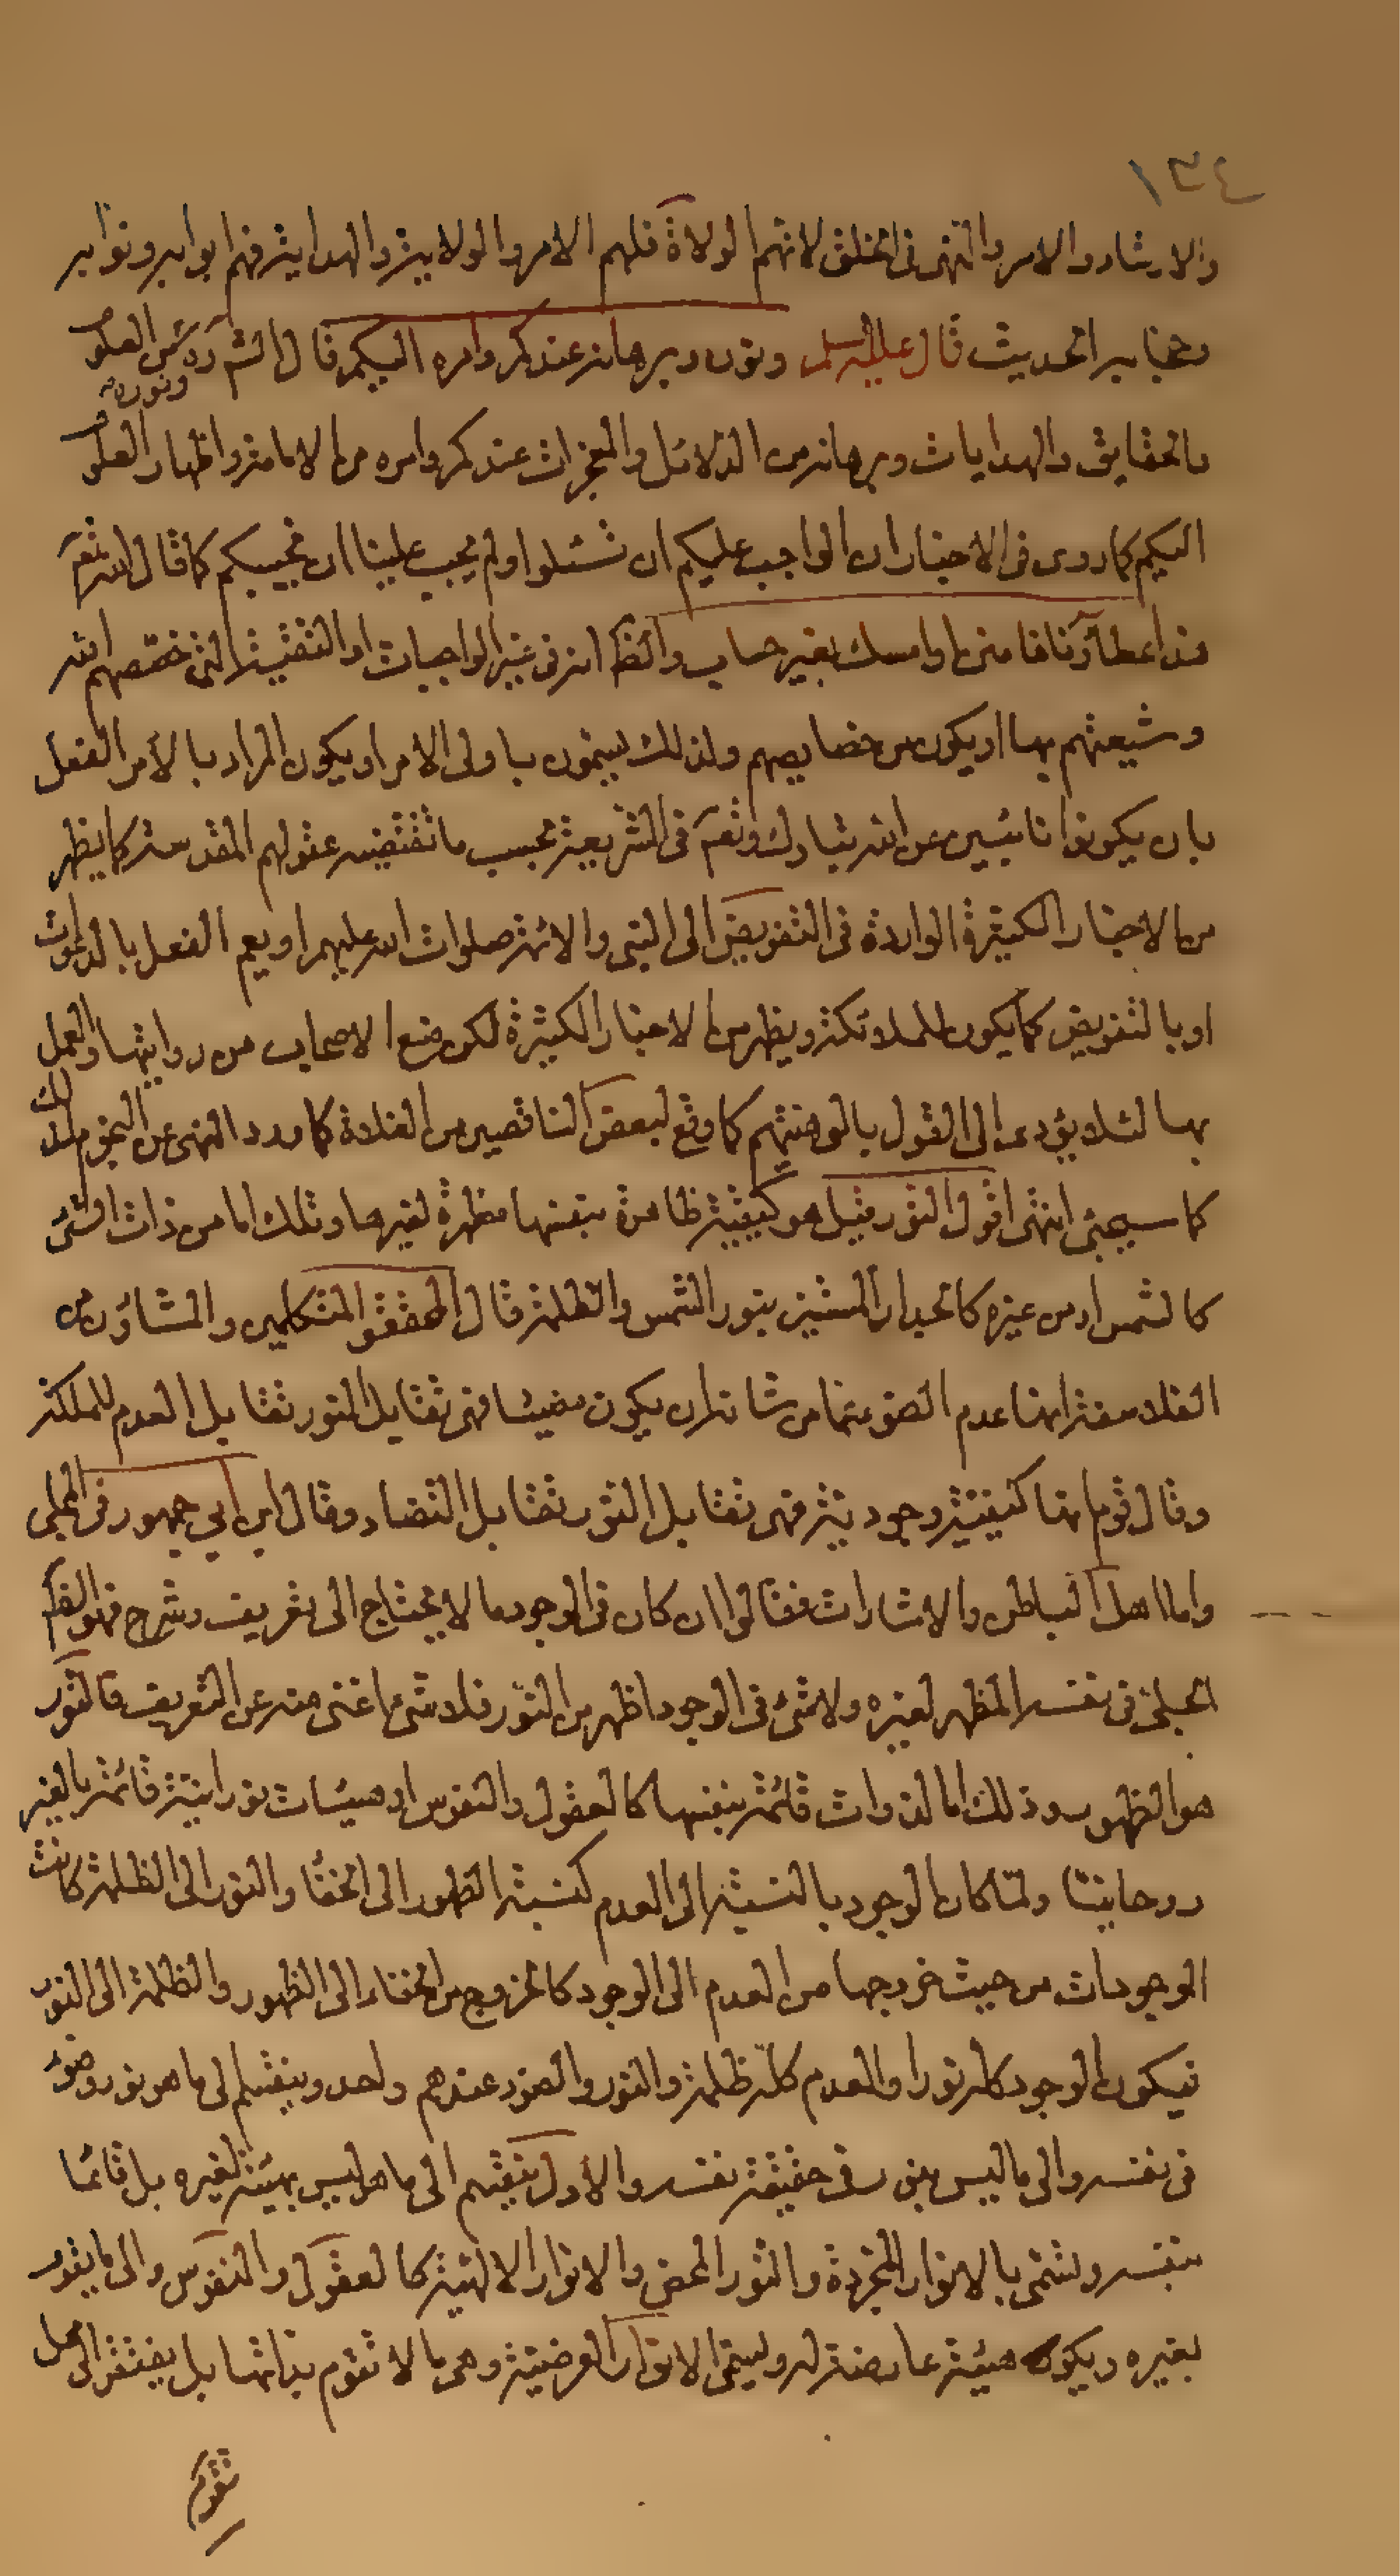 ١٣٤
والارشاد والامر والنهى فى الخلق لانهم الولاة فلهم الامر والولاية والهداية فهم ابوابه ونوابه
وحجابه الحديث قال عليه السلم ونوره وبرهانه عندكم وامره اليكم قال الش ره من العلوم
ونوره
والحقايق والهدايات وبرهانه من الدلائل والمعجزات عندكم وامره من الامامة واظهار العلوم
اليكم كما روى فى الاخبار ان الواجب عليكم ان تسئلوا ولم يجب علينا ان نجيبكم كما قال الله تعم
هذا عطاؤنا فامنن او امسك بغير حساب والظ انه فى غير الواجبات او التقية التى خصصهم الله
وشيعتهم بها او يكون من خصايصهم ولذلك يسمون باولى الامر او يكون المراد بالأمر الفعل
بان يكونوا نائبين عن الله تبارك وتعم فى الشريعة بحسب ما تقتضيه عقولهم المقدسة كما يظهر
من الاخبار الكثيرة الواردة فى التفويض الى النبى والائمة صلوات الله عليهم او يعم الفعل بالدعوات
او بالتفويض كما يكون للملائكة ويظهر من الاخبار الكثيرة لكن منع الاصحاب من روايتها والعمل
بها لئلا يؤدى الى القول بالوهيتهم كما وقع لبعض الناقصين من الغلاة كما ورد النهى عن النجوم لذلك
كما سيجئ انتهى اقول النور قيل هو كيفية ظاهرة بنفسها مظهرة لغيرها وتلك اما من ذات الشئ
كالشمس او من غيره كالجدار المستنير بنور الشمس والظلمة قال المحققو المتكلمين والمشاؤن من
الفلاسفة انها عدم الضوء عما من شانه ان يكون مضيئا فهى تقابل النور تقابل العدم للملكة
وقال قوم انها كيفية وجودية فهى تقابل النور تقابل التضاد وقال ابن ابي جمهور فى المجلى
واما اهل الباطن والاشارات فقالوا ان كان فى الوجود ما لا يحتاج الى تعريف وشرح فهو الظم
الجلى فى نفسه المظهر لغيره ولا شئ فى الوجود اظهر من النور فلا شئ اغنى منه عن التعريف فالنور
هو الظهور وذلك اما لذوات قائمة بنفسها كالعقول والنفوس او هيئات نورانية قائمة بالغير
روحانيتا ولما كان الوجود بالنسبة الى العدم كنسبة الظهور الى الخفا والنور الى الظلمة كانت
الموجودات من حيث خروجها من العدم الى الوجود كالخروج من الخفاء الى الظهور والظلمة الى النور
فيكون الوجود كله نورا والعدم كله ظلمة والنور والضوء عندهم واحد وينقسم الى ما هو نور وضوء
فى نفسه والى ما ليس بنور فى حقيقة نفسه والأول ينقسم الى ما هو ليس بهيئة لغيره بل قائما
بنفسه وتسمى بالانوار المجردة والنور المحض والانوار الالهية كالعقول والنفوس والى ما يقوم
بغيره ويكون هيئة عارضة له ويسمى الانوار العرضية وهى ما لا تقوم بذاتها بل يفتقر الى محل
تقوم